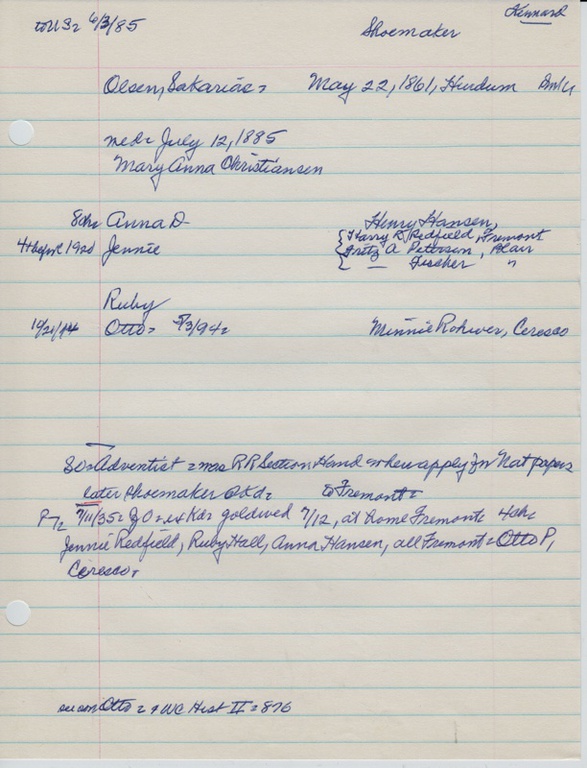 Kennard
to US 6/3/85 Shoemaker
Olsen, Sakarias = May 22, 1861, Hurdum
med = July 12, 1885
Mary Anna Christiansen
8 ch = Anna D - Henry Hansen,
{Harry D. Redfield, Fremont
4th 1920 Jennie {Fritz A Petersen, Blair
{ — Fischer "
Ruby
10/21/14 Otto = 5/3/94 = Minnie Rohwer, Ceresco
SO = Adventist = was RR Section Hand when apply for Nat papers
later Shoemaker to Fremont =
P 7/11/35 = goldwed 7/12, at home Fremont = 4 ch =
Jennie Redfield, Ruby Hall, Anna Hansen, all Fremont = Otto P,
Ceresco.
son Otto = WC Hist II = 876